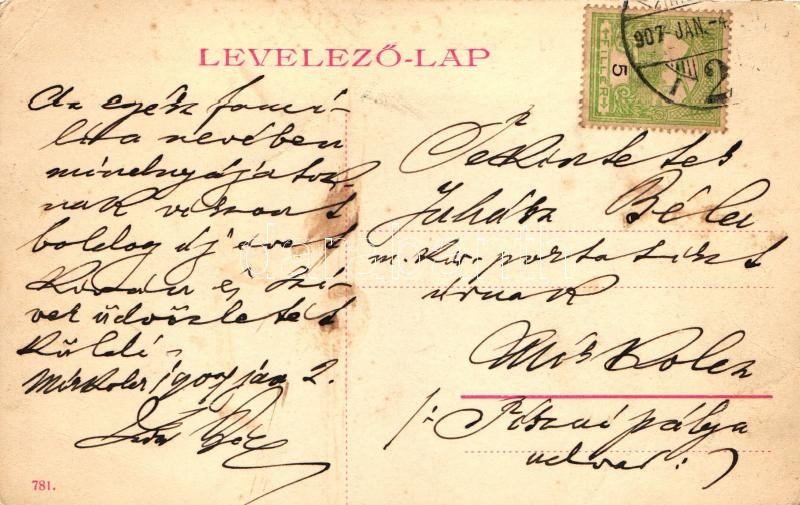 LEVELEZŐ-LAP
907 JAN.-4
FILLÉR
5
Az egész fami-
lia nevében
mindnyájatok-
nak viszont
boldog új évet
kiván és szi-
ves üdvözletét
küldi
Miskolc 1907 jan 2.
Tekintetes
Juhász Béla
m. kir. postatiszt
úrnak
Miskolcz
/: Tiszai pálya
udvar :/
781.